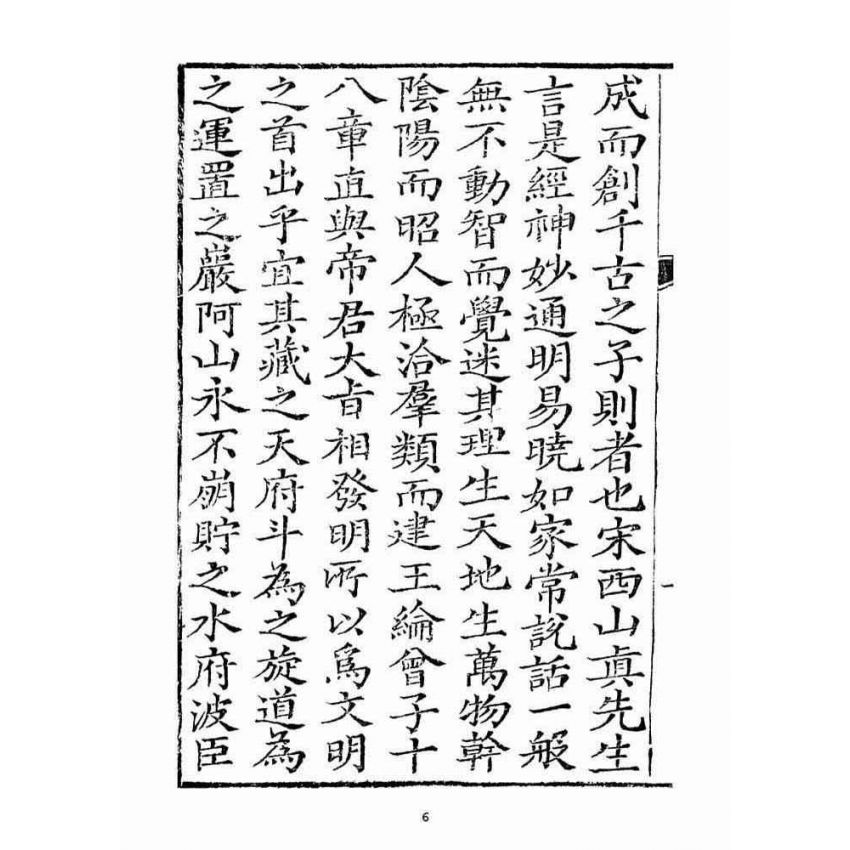 成而創千古之子則者也宋西山眞先生
言是經神妙通明易曉如家常説話一般
無不動智而覺迷其理生天地生萬物幹
陰陽而昭人極洽羣類而建王綸曾子十
八章直與帝君大㫖相發明所以爲文明
之首出乎宜其藏之天府斗為之旋道為
之運置之巖阿山永不崩貯之水府波臣
6